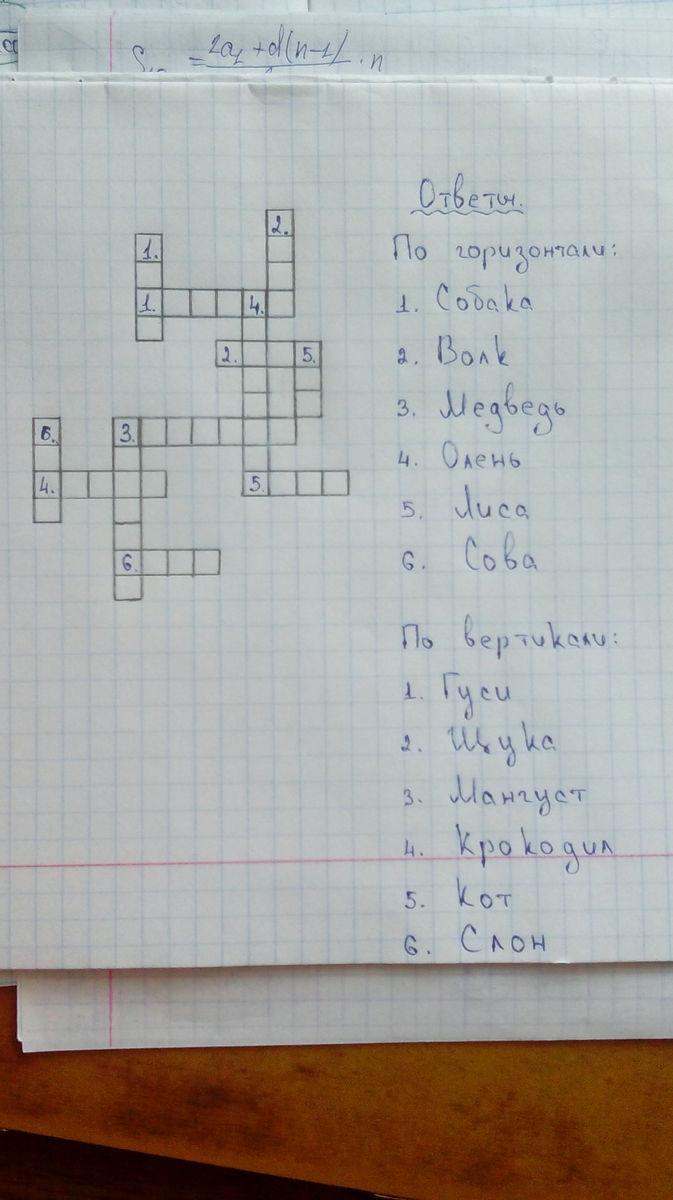 = 2a₁ + d(n-1) · n
2.
1.
1. 4.
2. 5.
6. 3.
4. 5.
6.
Ответы.
По горизонтали:
1. Собака
2. Волк
3. Медведь
4. Олень
5. Лиса
6. Сова
По вертикали:
1. Гуси
2. Щука
3. Мангуст
4. Крокодил
5. Кот
6. Слон